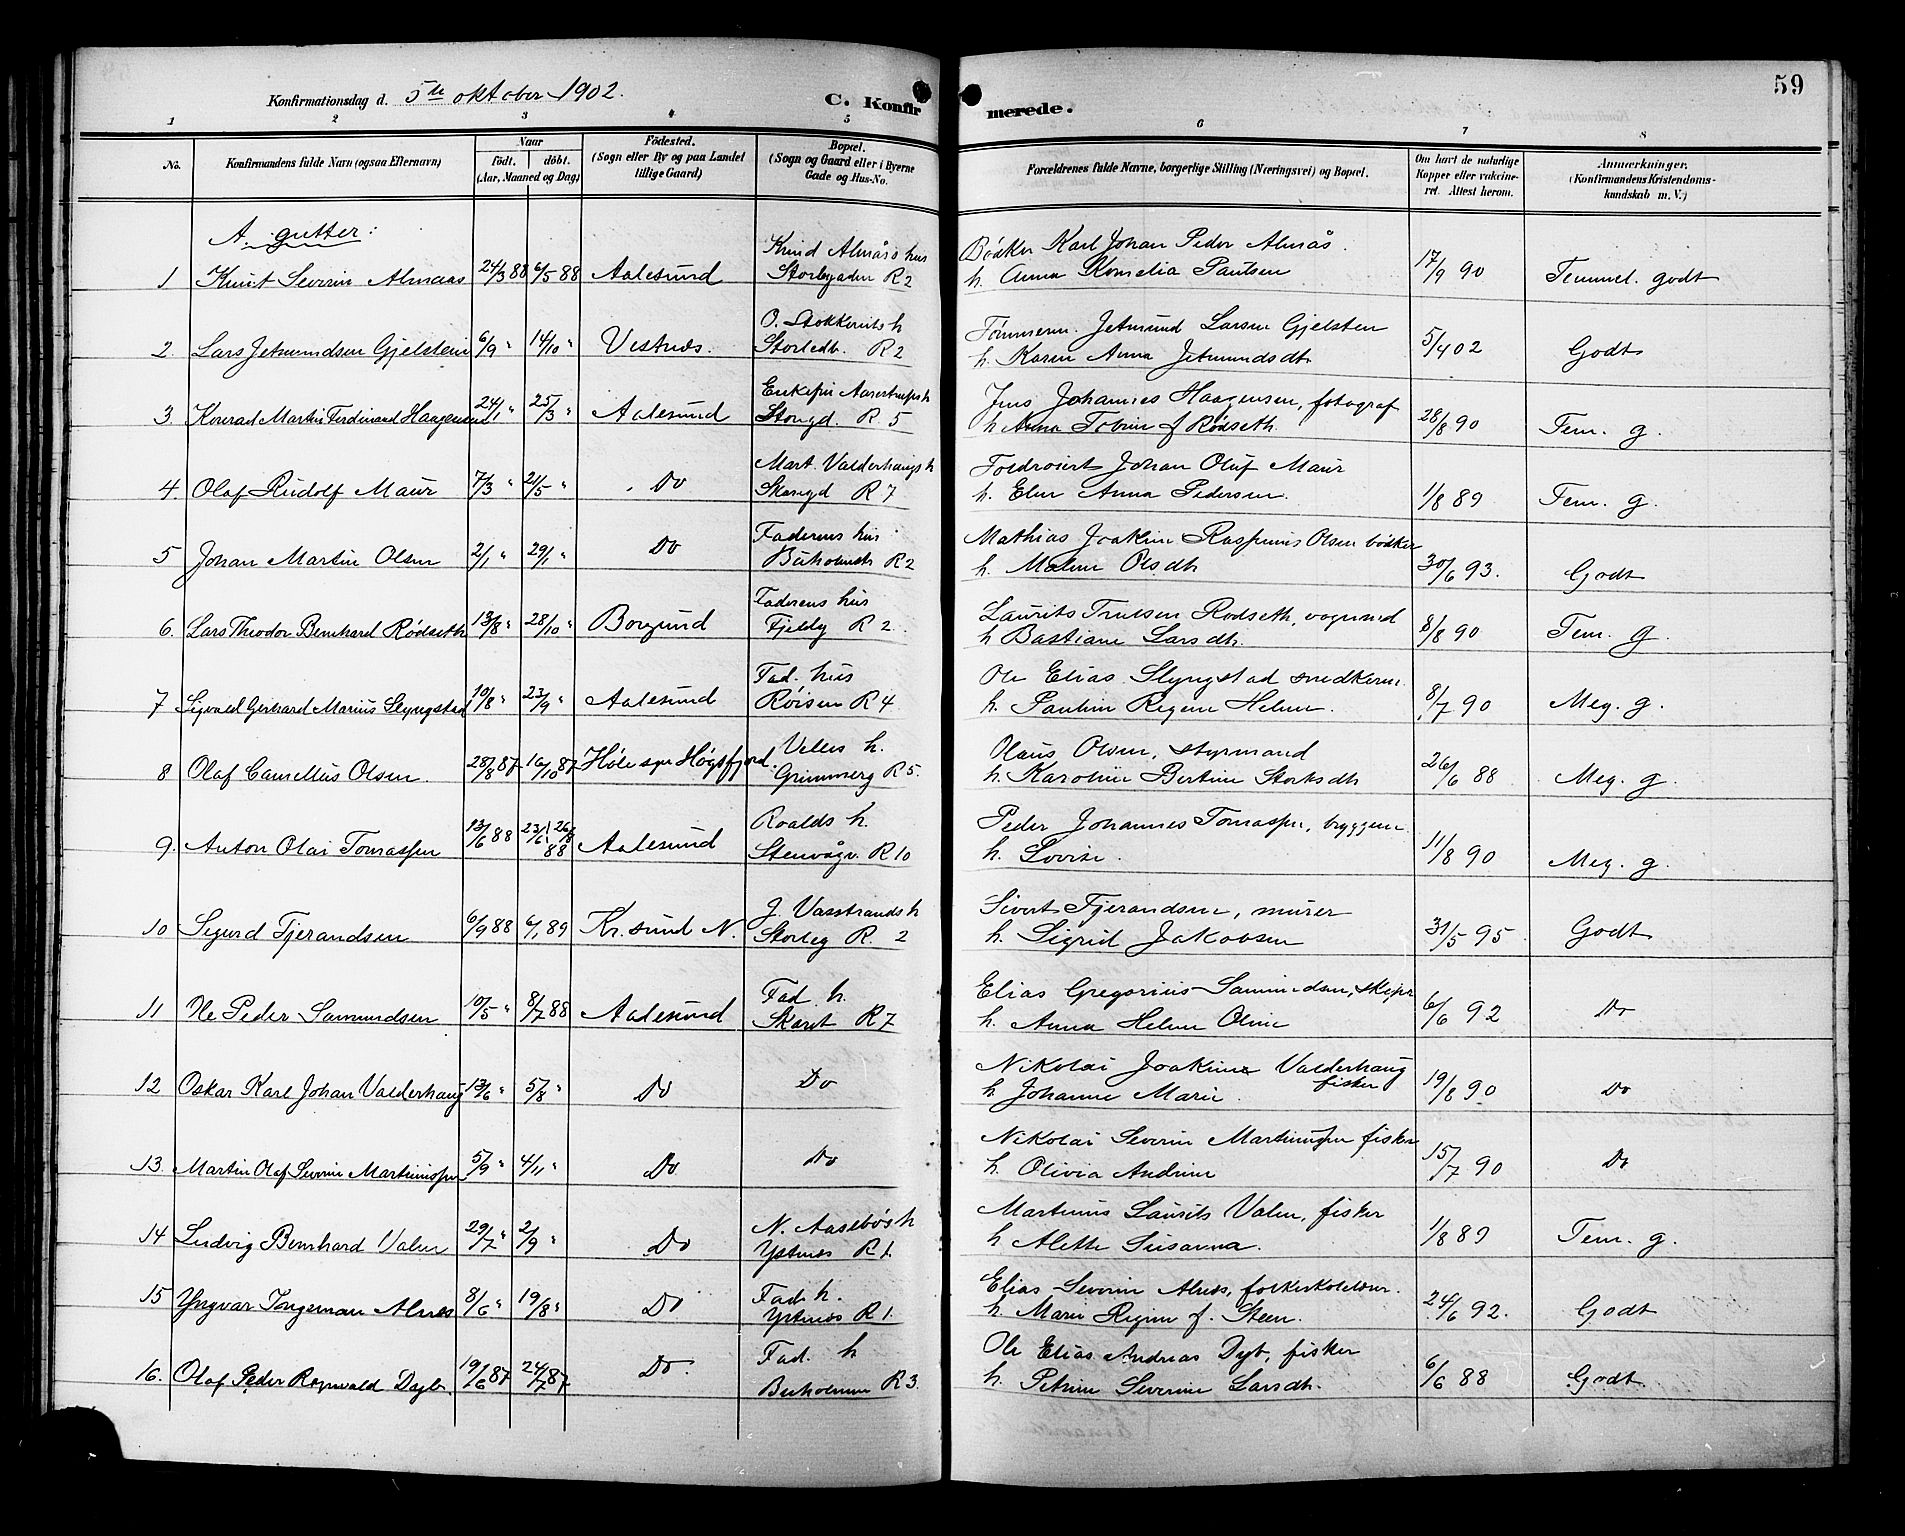 59
Konfirmationsdag d. 5te oktober 1902.
C. Konfirmerede.
1 2 3 4 5 6 7 8
No.
Konfirmandens fulde Navn (ogsaa Efternavn)
Naar
født. døbt.
(Aar, Maaned og Dag)
Fødested.
(Sogn eller By og paa Landet
tillige Gaard)
Bopæl.
(Sogn og Gaard eller i Byerne
Gade og Hus-No.
Forældrenes fulde Navne, borgerlige Stilling (Næringsvei) og Bopæl.
Om havt de naturlige
Kopper eller vakcine-
ret. Attest herom.
Anmærkninger.
(Konfirmandens Kristendoms-
kundskab m. V.)
A. gutter:
Knud Almås hus
Bødker Karl Johan Peder Almås.
1 Knut Severin Almaas 24/3 88 6/5 88 Aalesund Storbgaden R 2 h. Anna Kornelia Paulsen 17/9 90 Temmel. godt
O. Stokkenits h
Tømmerm. Jetmund Larsen Gjelsten
2. Lars Jetmundsen Gjelstein 6/9 " 14/10 " Vestnes. Storledb. R 2 h. Karen Anna Jetmundsdt. 5/4 02 Godt
Enkefru Aarestrups h
Jens Johannes Haagensen, fotograf
3. Konrad Martin Ferdinand Haagensen 24/1 " 25/3 " Aalesund Storgd. R 5 h Anna Tobine f Rødseth. 28/8 90 Tem. g.
Mart. Valderhaugs h
Toldroiert Johan Oluf Maur
4. Olaf Rudolf Maur 7/3 " 21/5 " Do Skargd R 7 h. Elen Anna Pedersen. 1/8 89 Tem. g.
Faderens hus
Mathias Joakim Rasmus Olsen bødker
5 Johan Martin Olsen 2/1 " 29/1 " Do R 2 h. Malene Olsdt. 30/6 93. Godt
Faderens hus
Laurits Trulsen Rødseth, vognmd
6. Lars Theodor Bernhard Rødseth 13/8 " 28/10 " Borgund Fjeldg R 2 h Bastiane Larsdt. 8/8 90 Tem. g.
Fad. hus
Ole Elias Slyngstad snedkerm.
7 Sigvald Gerhard Marius Slyngstad 10/8 " 23/9 " Aalesund Røisen R 4 h. Pauline Regine Helene. 8/7 90 Meg. g.
Velles h.
Olaus Olsen, styrmand
8 Olaf Camelius Olsen. 28/8 87 16/10 87 Høle spr Høgsfjord. Grimmerg R 5. h. Karoline Bertine Storksdt 26/6 88 Meg. g.
Roalds h.
Peder Johannes Tomassen, bryggem.
9. Anton Olai Tomassen 13/6 88 23/6 26/8 88 Aalesund Stenvågv. R 10 h. Lovise. 11/8 90 Meg. g.
J. Vasstrands h
Sivert Tjerandsen, murer
10 Sigurd Tjerandsen 6/9 88 6/1 89 Kr.sund N. Storleg R. 2 h. Sigrid Jakobsen 31/5 95 Godt
Fad. h.
Elias Gregorius Samundsen, skipr
11 Ole Peder Samundsen 10/5 " 8/7 88 Aalesund Skaret R 7 h. Anna Helene Oline 6/6 92 Do
Nikolai Joakim Valderhaug
fisker
12 Oskar Karl Johan Valderhaug 13/6 " 5/8 " Do Do h. Johanne Marie. 19/8 90 Do
Nikolai Severin Martinussen fisker
13. Martin Olaf Severin Martinussen 5/9 " 4/11 " Do Do h. Olivia Andrine 15/7 90 Do
N. Aasebøs h
Martinus Laurits Valen, fisker
14 Ludvig Bernhard Valen 29/7 " 2/9 " Do Ystnes R 1. h Alette Susanna. 1/8 89 Tem. g.
Fad. h.
Elias Severin Alnes, folkeskolelærer.
15 Yngvar Ingeman Alnes 8/6 " 19/8 " Do Ystnes R 1. h. Marie Regine f. Steen. 24/6 92. Godt
Fad. h
Ole Elias Andreas Dyb, fisker
16. Olaf Peder Ragnvald Dyb. 19/6 87 24/7 87 Do Buholmen R 3. h. Petrine Severine Larsdt. 6/6 88 Godt